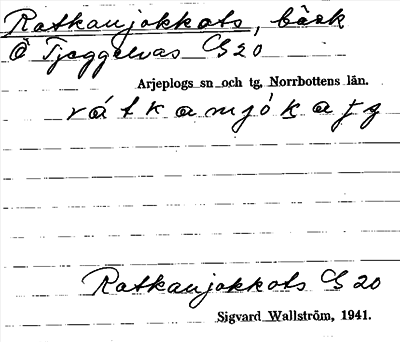 Ratkaujokkats, bäck
Ö Tjeggelvas G 20
Arjeplogs sn och tg, Norrbottens län.
Ratkaujokkats G 20
Sigvard Wallström, 1941.